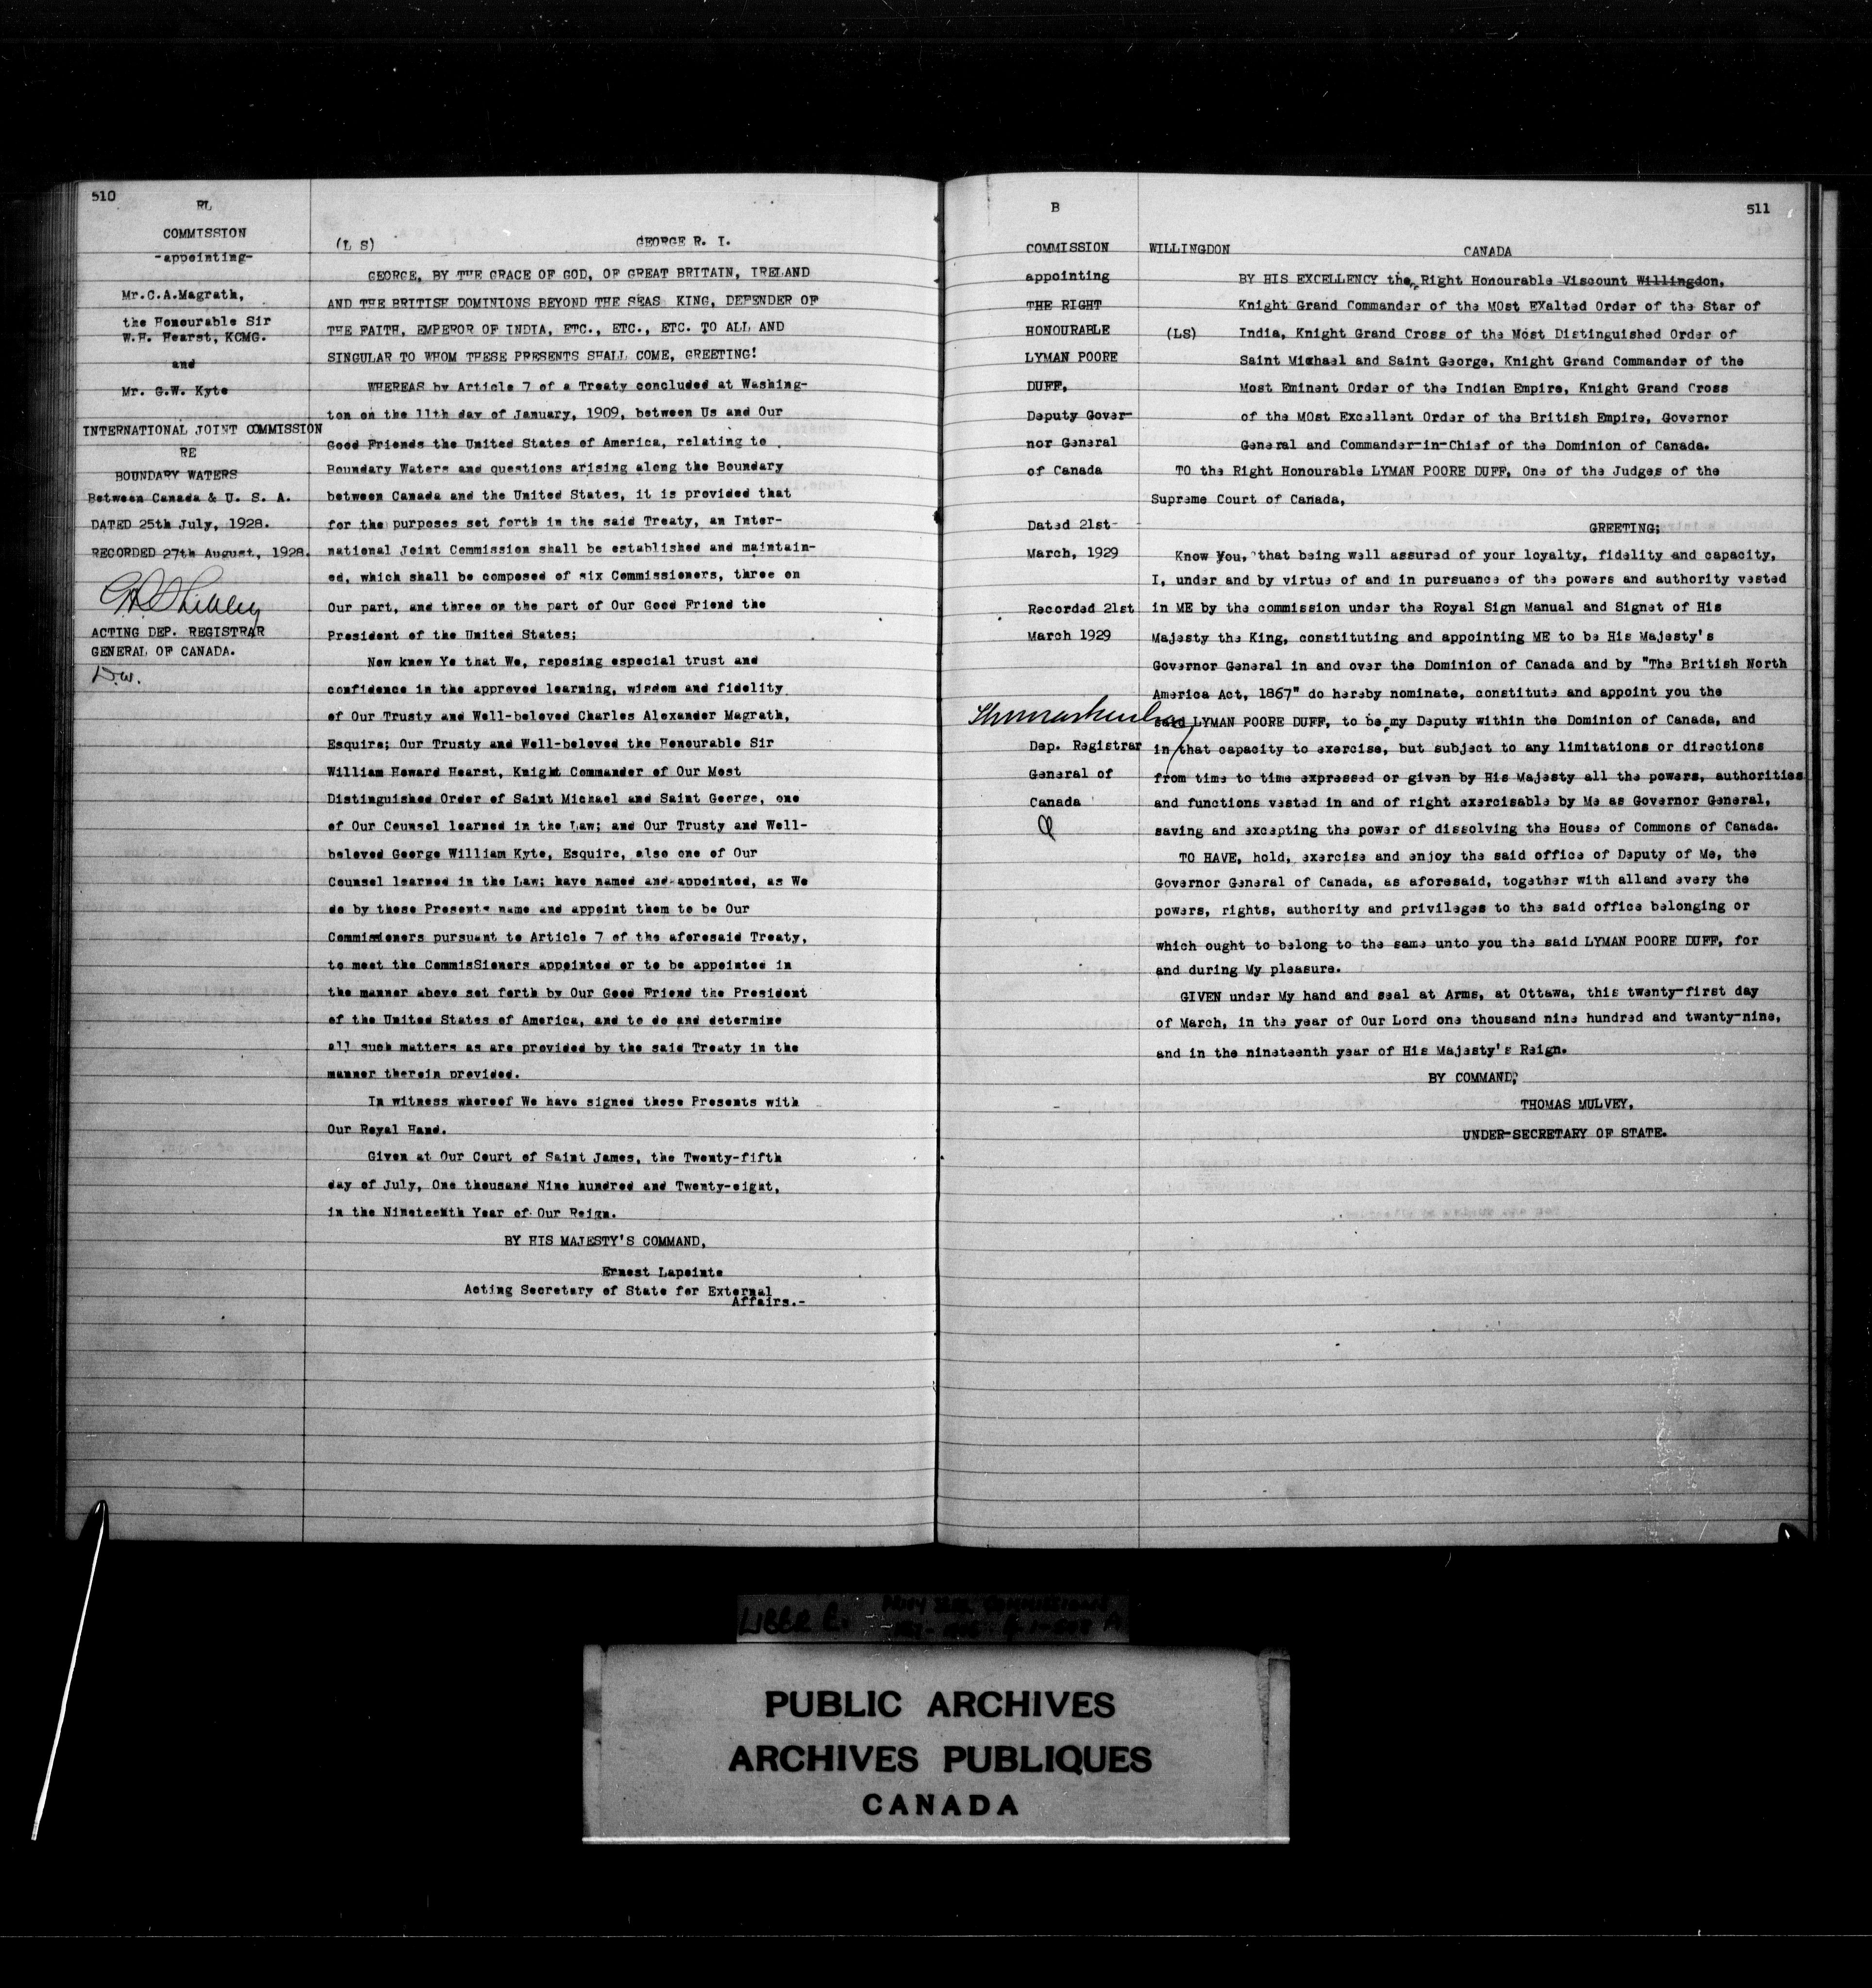 510
RL
COMMISSION
-appointing-
Mr.C.A.Magrath,
the Honourable Sir
W.H. Hearst, KCMG.
and
Mr. G.W. Kyte
INTERNATIONAL JOINT COMMISSION
RE
BOUNDARY WATERS
Between Canada & U. S. A.
DATED 25th July, 1928.
RECORDED 27th August, 1928.
ACTING DEP. REGISTRAR
GENERAL OF CANADA.
D.W.
(L S) GEORGE R. I.
GEORGE, BY THE GRACE OF GOD, OF GREAT BRITAIN, IRELAND
AND THE BRITISH DOMINIONS BEYOND THE SEAS KING, DEFENDER OF
THE FAITH, EMPEROR OF INDIA, ETC., ETC., ETC. TO ALL AND
SINGULAR TO WHOM THESE PRESENTS SHALL COME, GREETING!
WHEREAS by Article 7 of a Treaty concluded at Washing-
ton on the 11th day of January, 1909, between Us and Our
Good Friends the United States of America, relating to
Boundary Waters and questions arising along the Boundary
between Canada and the United States, it is provided that
for the purposes set forth in the said Treaty, an Inter-
national Joint Commission shall be established and maintain-
ed, which shall be composed of six Commissioners, three on
Our part, and three on the part of Our Good Friend the
President of the United States;
Now know Ye that We, reposing especial trust and
confidence in the approved learning, wisdom and fidelity
of Our Trusty and Well-beloved Charles Alexander Magrath,
Esquire; Our Trusty and Well-beloved the Honourable Sir
William Howard Hearst, Knight Commander of Our Most
Distinguished Order of Saint Michael and Saint George, one
of Our Counsel learned in the Law; and Our Trusty and Well-
beloved George William Kyte, Esquire, also one of Our
Counsel learned in the Law; have named and appointed, as We
do by these Presents name and appoint them to be Our
Commissioners pursuant to Article 7 of the aforesaid Treaty,
to meet the CommisSioners appointed or to be appointed in
the manner above set forth by Our Good Friend the President
of the United States of America, and to do and determine
all such matters as are provided by the said Treaty in the
manner therein provided.
In witness whereof We have signed these Presents with
Our Royal Hand.
Given at Our Court of Saint James, the Twenty-fifth
day of July, One thousand Nine hundred and Twenty-eight,
in the Nineteenth Year of Our Reign.
BY HIS MAJESTY'S COMMAND,
Ernest Lapointe
Acting Secretary of State for External
Affairs.-
B
511
COMMISSION
appointing
THE RIGHT
HONOURABLE
LYMAN POORE
DUFF,
Deputy Gover-
nor General
of Canada
Dated 21st
March, 1929
Recorded 21st
March 1929
Dep. Registrar
General of
Canada
WILLINGDON CANADA
BY HIS EXCELLENCY the Right Honourable Viscount Willingdon,
Knight Grand Commander of the MOst EXalted Order of the Star of
(LS) India, Knight Grand Cross of the Most Distinguished Order of
Saint Michael and Saint George, Knight Grand Commander of the
Most Eminent Order of the Indian Empire, Knight Grand Cross
of the MOst Excellent Order of the British Empire, Governor
General and Commander-in-Chief of the Dominion of Canada.
TO the Right Honourable LYMAN POORE DUFF, One of the Judges of the
Supreme Court of Canada,
GREETING;
Know you, that being well assured of your loyalty, fidelity and capacity,
I, under and by virtue of and in pursuance of the powers and authority vested
in ME by the commission under the Royal Sign Manual and Signet of His
Majesty the King, constituting and appointing ME to be His Majesty's
Governor General in and over the Dominion of Canada and by "The British North
America Act, 1867" do hereby nominate, constitute and appoint you the
said LYMAN POORE DUFF, to be my Deputy within the Dominion of Canada, and
in that capacity to exercise, but subject to any limitations or directions
from time to time expressed or given by His Majesty all the powers, authorities
and functions vested in and of right exercisable by Me as Governor General,
saving and excepting the power of dissolving the House of Commons of Canada.
TO HAVE, hold, exercise and enjoy the said office of Deputy of Me, the
Governor General of Canada, as aforesaid, together with alland every the
powers, rights, authority and privileges to the said office belonging or
which ought to belong to the same unto you the said LYMAN POORE DUFF, for
and during My pleasure.
GIVEN under My hand and seal at Arms, at Ottawa, this twenty-first day
of March, in the year of Our Lord one thousand nine hundred and twenty-nine,
and in the nineteenth year of His Majesty's Reign.
BY COMMAND,
THOMAS MULVEY,
UNDER-SECRETARY OF STATE.
LIBER E.
PUBLIC ARCHIVES
ARCHIVES PUBLIQUES
CANADA